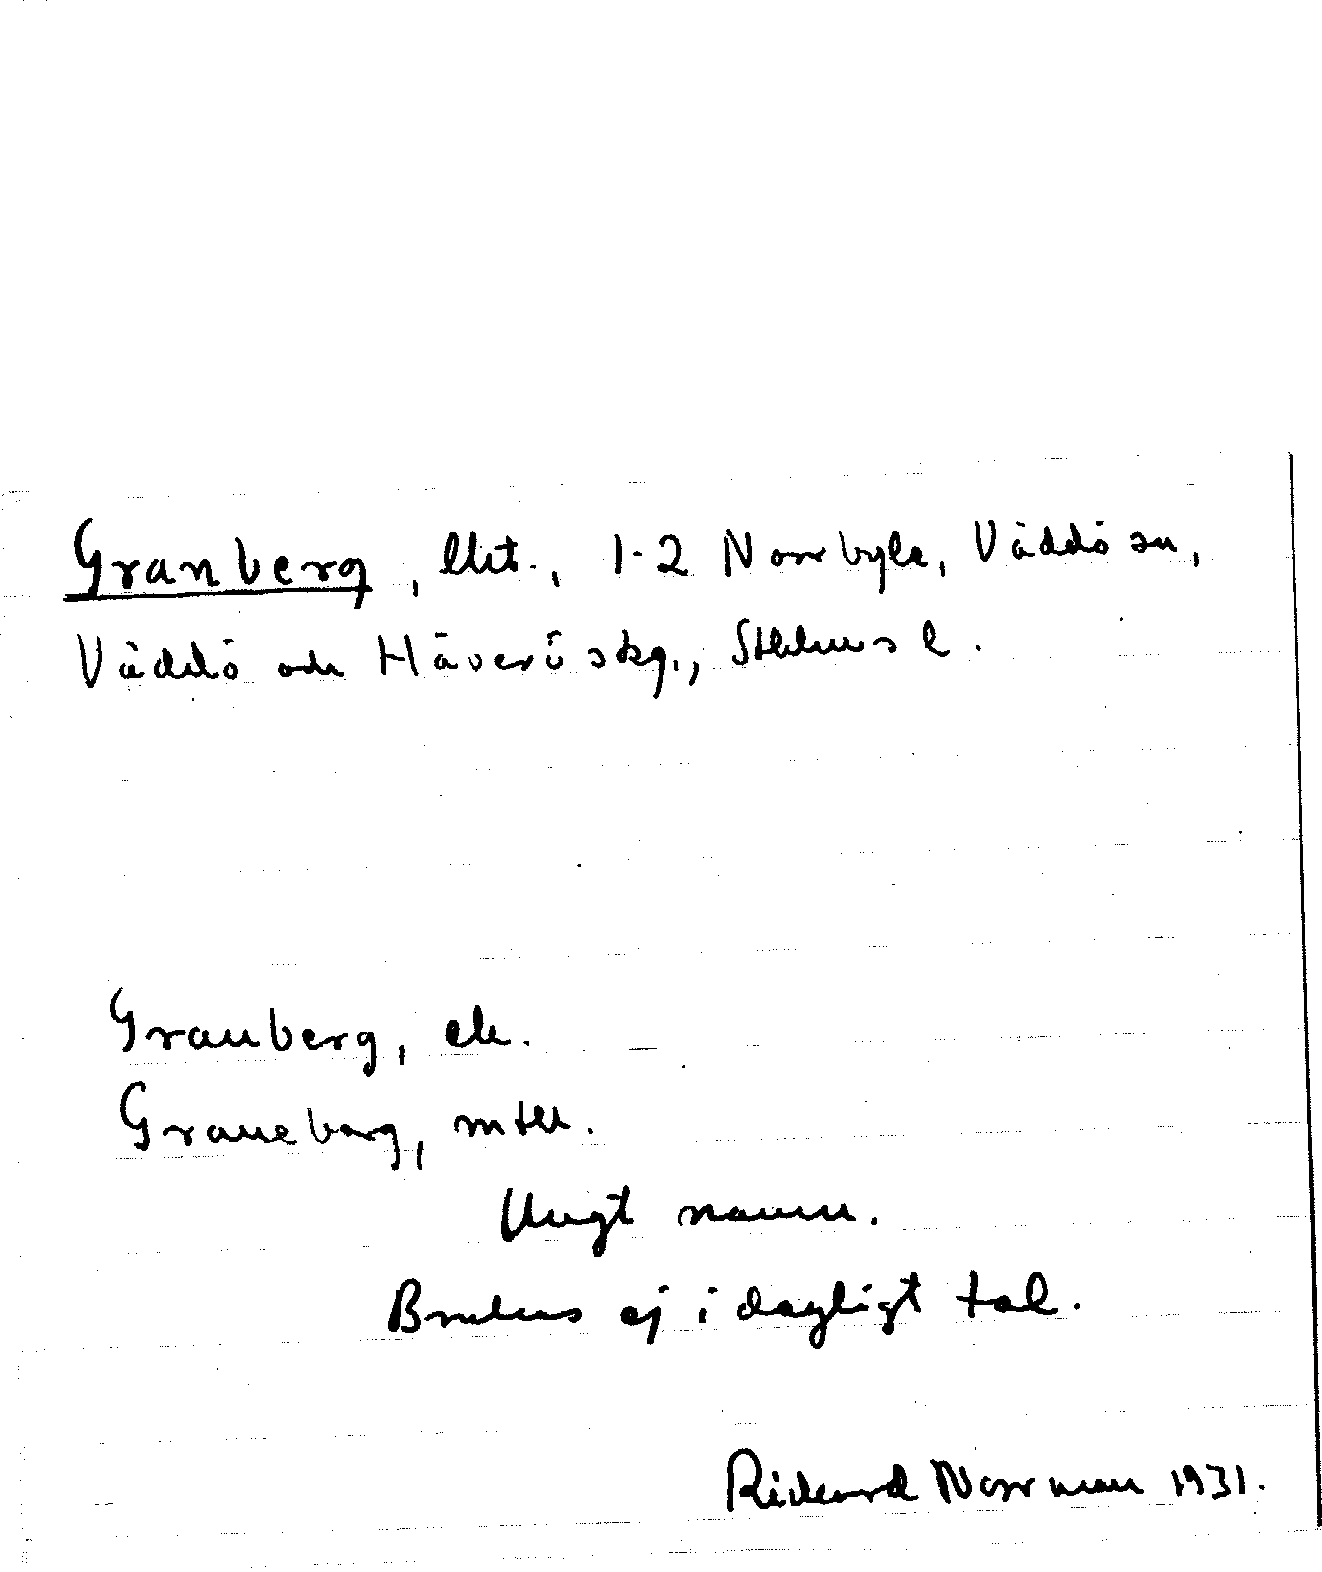 Granberg, lht., 1-2 Norrbyle, Väddö sn,
Väddö och Häverö skg., Sthlms l.
Granberg, ek.
Graneberg, mtl.
Ungt namn.
Brukas ej i dagligt tal.
Rickard Norrman 1931.